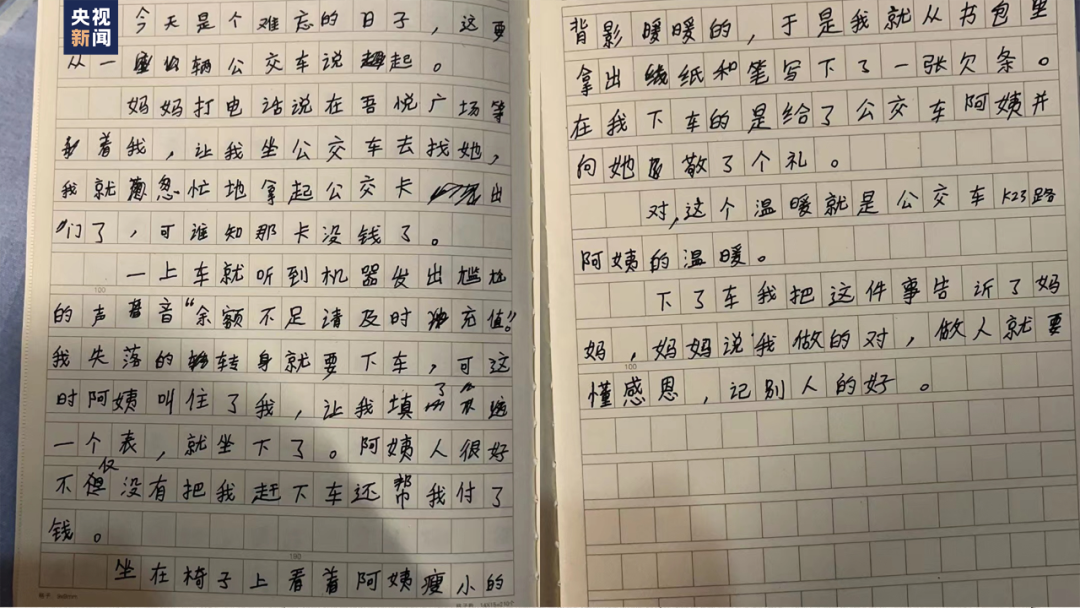 央视
新闻
今天是个难忘的日子，这要
从一辆公交车说起。
妈妈打电话说在吾悦广场等
着我，让我坐公交车去找她，
我就急忙地拿起公交卡出
门了，可谁知那卡没钱了。
一上车就听到机器发出尴尬
的声音“余额不足请及时充值。”
我失落的转身就要下车，可这
时阿姨叫住了我，让我填了
一个表，就坐下了。阿姨人很好
不仅没有把我赶下车还帮我付了
钱。
坐在椅子上看着阿姨瘦小的
背影暖暖的，于是我就从书包里
拿出纸和笔写下了一张欠条。
在我下车的是给了公交车阿姨并
向她敬了个礼。
对，这个温暖就是公交车K23路
阿姨的温暖。
下了车我把这件事告诉了妈
妈，妈妈说我做的对，做人就要
懂感恩，记别人的好。
100
190
100